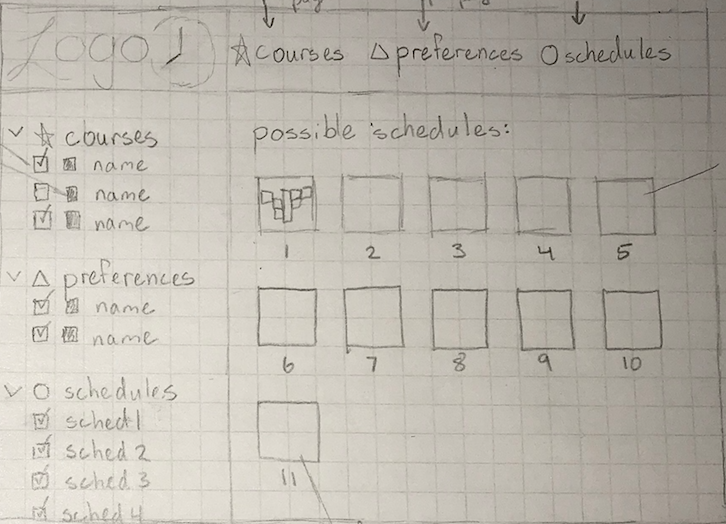 Logo
courses preferences schedules
courses
name
name
name
preferences
name
name
schedules
sched 1
sched 2
sched 3
sched 4
possible schedules:
1 2 3 4 5
6 7 8 9 10
11